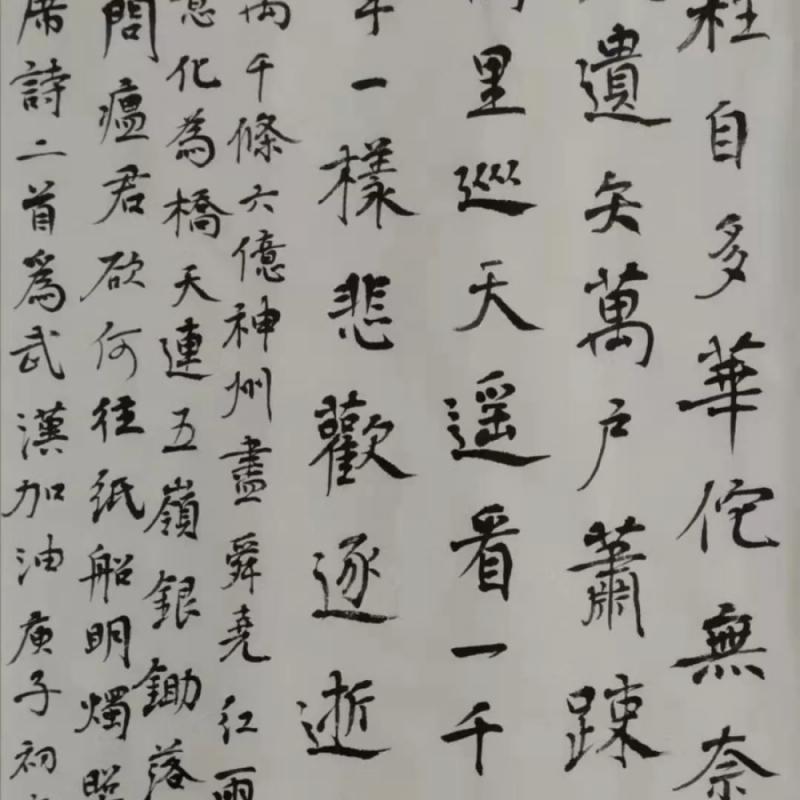 枉自多華佗無奈
遺矢萬户蕭踈
里巡天遥看一千
一樣悲歡逐逝
萬千條六億神州盡舜堯紅雨
意化為橋天連五嶺銀鋤落
問瘟君欲何往紙船明燭照
席詩二首爲武漢加油庚子初